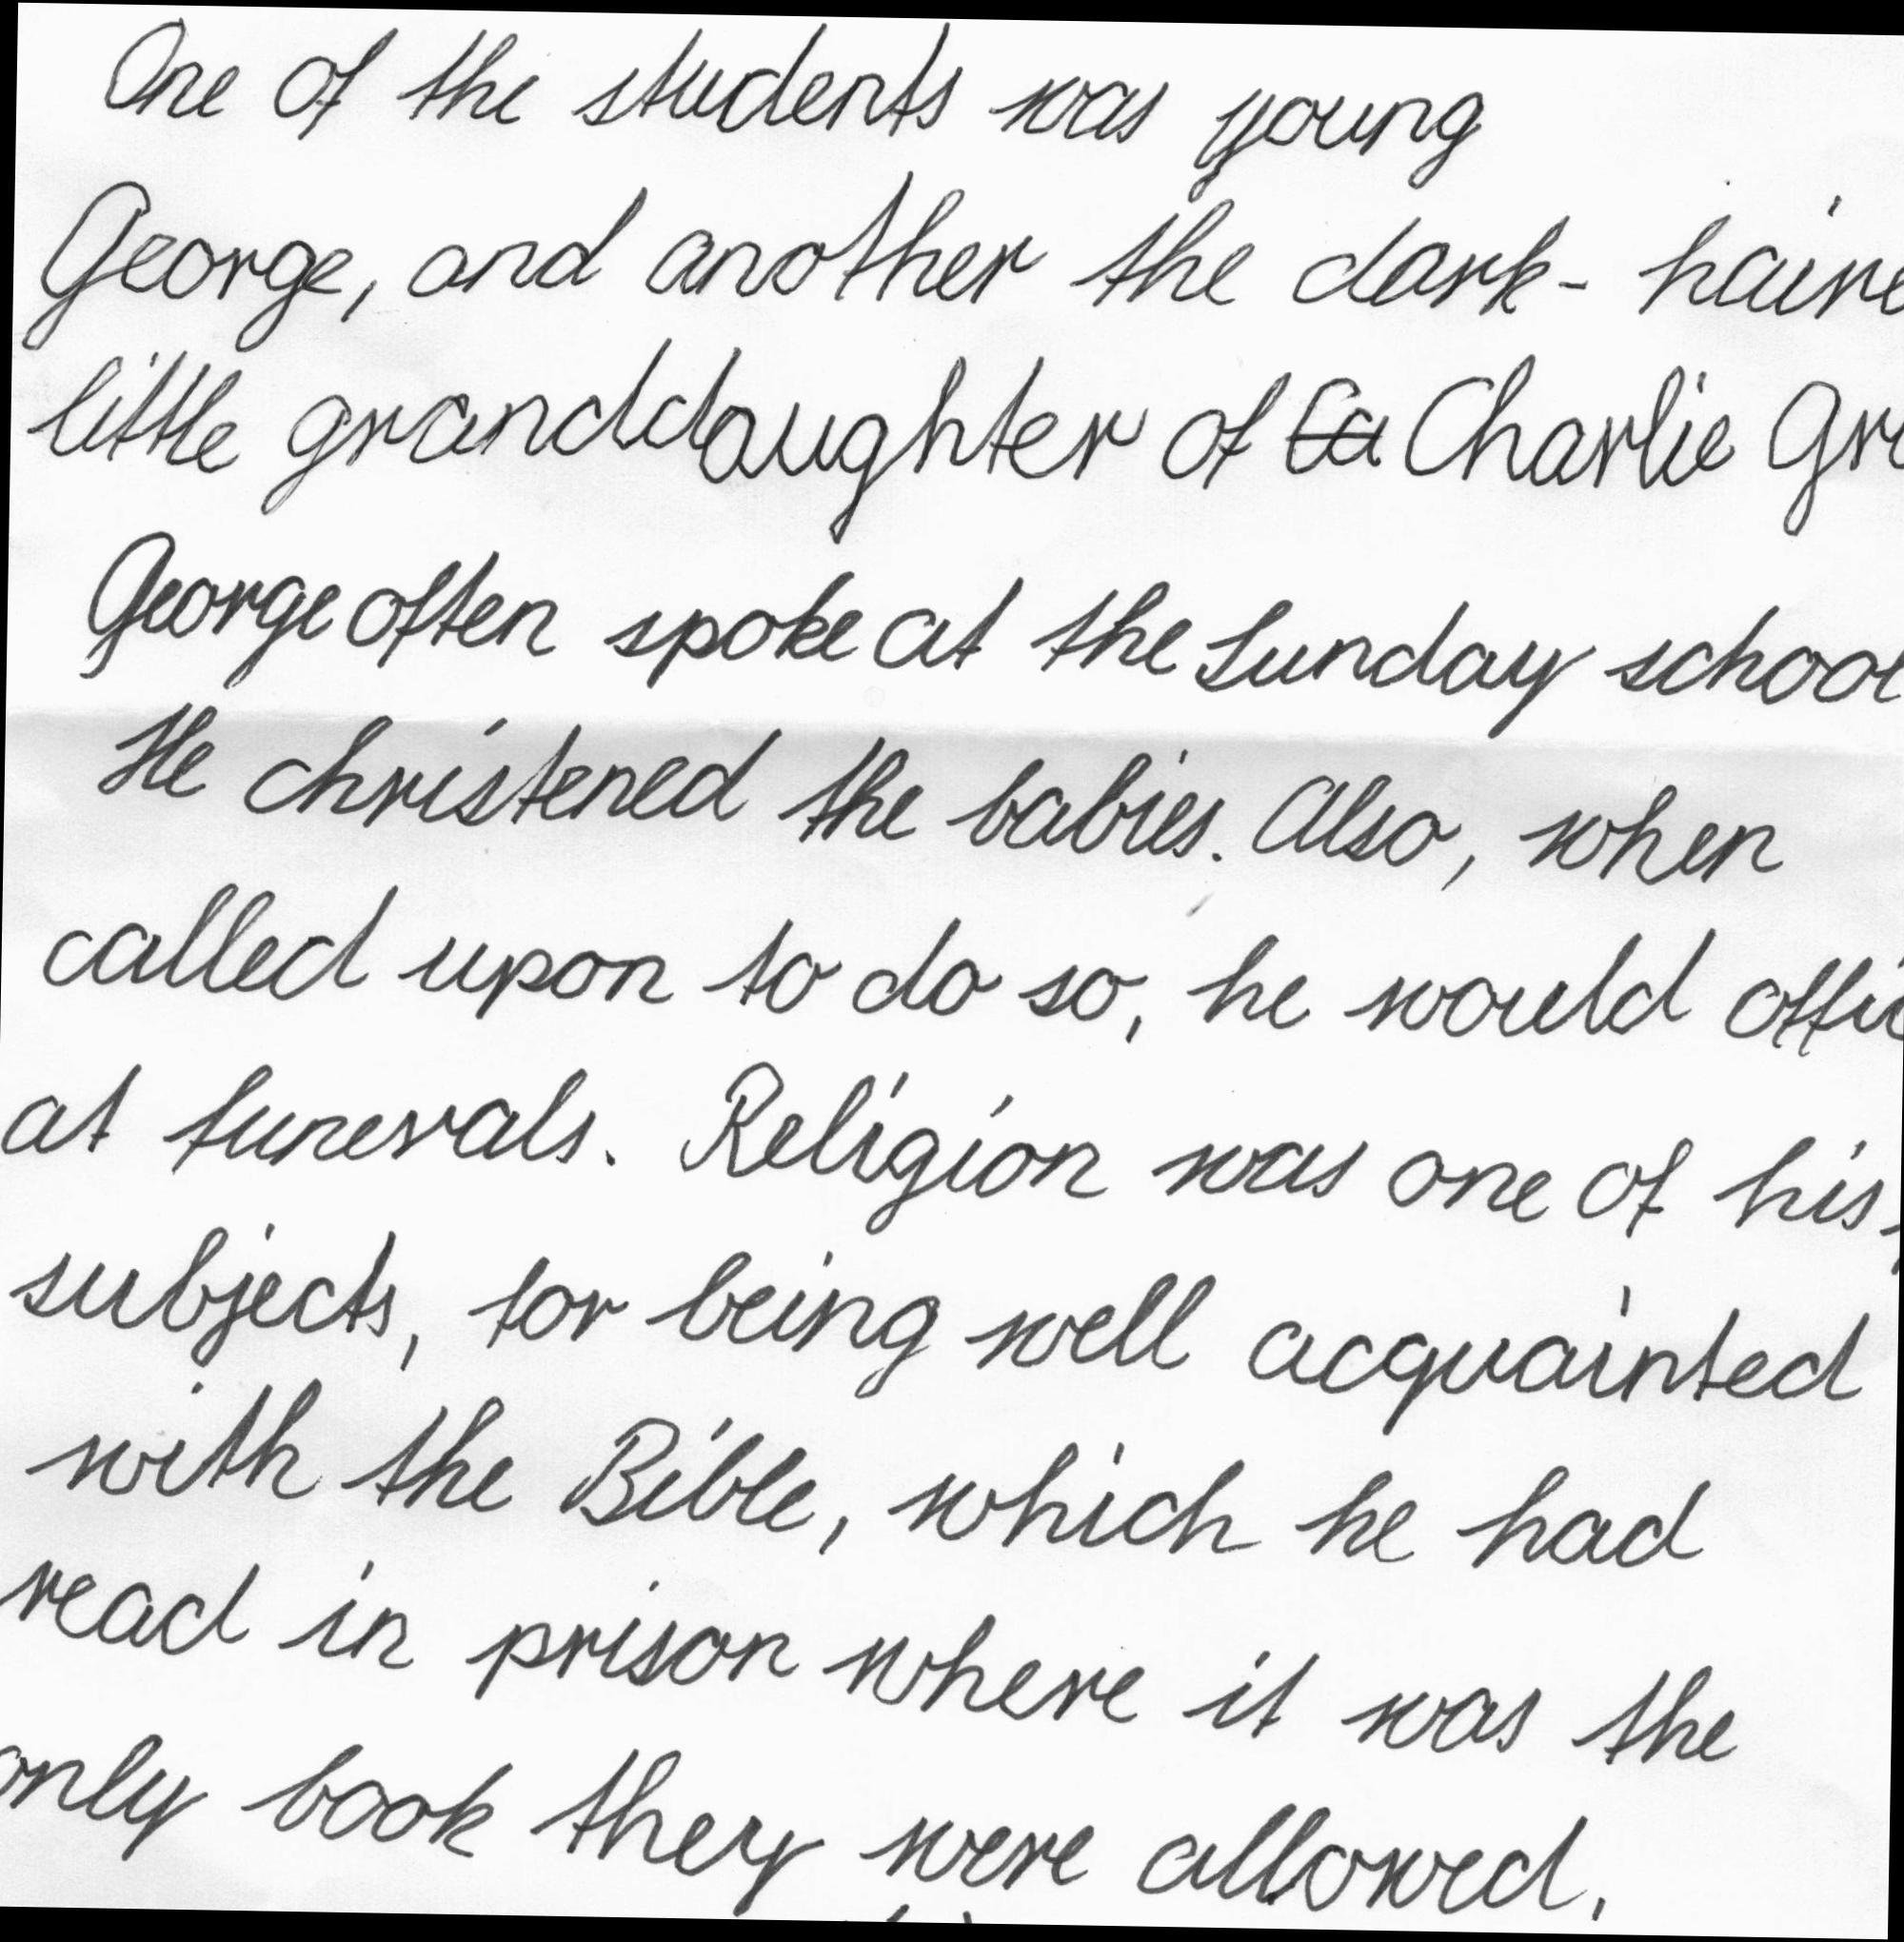 One of the students was young
George, and another the dark-haire
little granddaughter of Charlie Gr
George often spoke at the Sunday school
He christened the babies. Also, when
called upon to do so, he would offic
at funerals. Religion was one of his
subjects, for being well acquainted
with the Bible, which he had
read in prison where it was the
only book they were allowed.